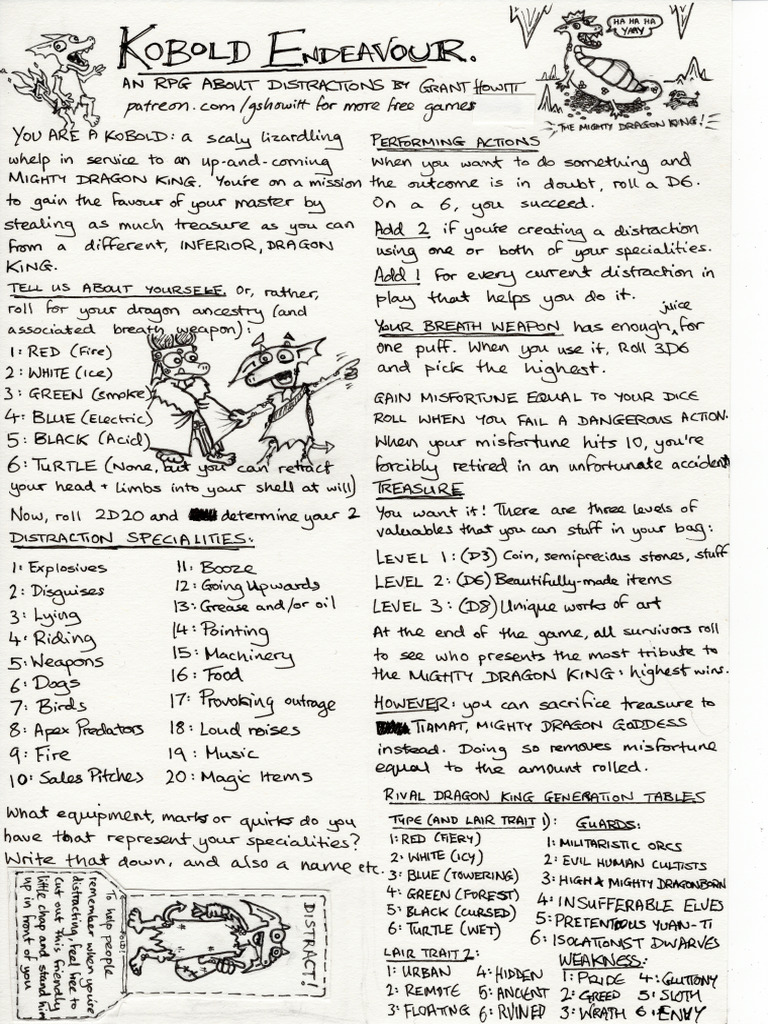 KOBOLD ENDEAVOUR.
AN RPG ABOUT DISTRACTIONS BY GRANT HOWITT
patreon.com/gshowitt for more free games
HA HA HA
YAAY
THE MIGHTY DRAGON KING!
YOU ARE A KOBOLD: a scaly lizardling
whelp in service to an up-and-coming
MIGHTY DRAGON KING. You're on a mission
to gain the favour of your master by
stealing as much treasure as you can
from a different, INFERIOR, DRAGON
KING.
TELL US ABOUT YOURSELF. Or, rather,
roll for your dragon ancestry (and
associated breath weapon):
1: RED (Fire)
2: WHITE (Ice)
3: GREEN (Smoke)
4: BLUE (Electric)
5: BLACK (Acid)
6: TURTLE (None, but you can retract
your head + limbs into your shell at will)
Now, roll 2D20 and determine your 2
DISTRACTION SPECIALITIES:
1: Explosives
2: Disguises
3: Lying
4: Riding
5: Weapons
6: Dogs
7: Birds
8: Apex Predators
9: Fire
10: Sales Pitches
11: Booze
12: Going Upwards
13: Grease and/or oil
14: Pointing
15: Machinery
16: Food
17: Provoking outrage
18: Loud noises
19: Music
20: Magic Items
What equipment, marks or quirks do you
have that represent your specialities?
Write that down, and also a name etc.
To help people
remember when you're
distracting, feel free to
cut out this friendly
little chap and stand him
up in front of you
FOLD!
DISTRACT!
PERFORMING ACTIONS
When you want to do something and
the outcome is in doubt, roll a D6.
On a 6, you succeed.
Add 2 if you're creating a distraction
using one or both of your specialities.
Add 1 for every current distraction in
play that helps you do it.
YOUR BREATH WEAPON has enough juice for
one puff. When you use it, Roll 3D6
and pick the highest.
GAIN MISFORTUNE EQUAL TO YOUR DICE
ROLL WHEN YOU FAIL A DANGEROUS ACTION.
When your misfortune hits 10, you're
forcibly retired in an unfortunate accident
TREASURE
You want it! There are three levels of
valuables that you can stuff in your bag:
LEVEL 1: (D3) Coin, semiprecious stones, stuff
LEVEL 2: (D6) Beautifully-made items
LEVEL 3: (D8) Unique works of art
At the end of the game, all survivors roll
to see who presents the most tribute to
the MIGHTY DRAGON KING: highest wins.
HOWEVER: you can sacrifice treasure to
TIAMAT, MIGHTY DRAGON GODDESS
instead. Doing so removes misfortune
equal to the amount rolled.
RIVAL DRAGON KING GENERATION TABLES
TYPE (AND LAIR TRAIT 1):
1: RED (FIERY)
2: WHITE (ICY)
3: BLUE (TOWERING)
4: GREEN (FOREST)
5: BLACK (CURSED)
6: TURTLE (WET)
GUARDS:
1: MILITARISTIC ORCS
2: EVIL HUMAN CULTISTS
3: HIGH & MIGHTY DRAGONBORN
4: INSUFFERABLE ELVES
5: PRETENTIOUS YUAN-TI
6: ISOLATIONIST DWARVES
LAIR TRAIT 2:
1: URBAN
2: REMOTE
3: FLOATING
4: HIDDEN
5: ANCIENT
6: RUINED
WEAKNESS:
1: PRIDE
2: GREED
3: WRATH
4: GLUTTONY
5: SLOTH
6: ENVY